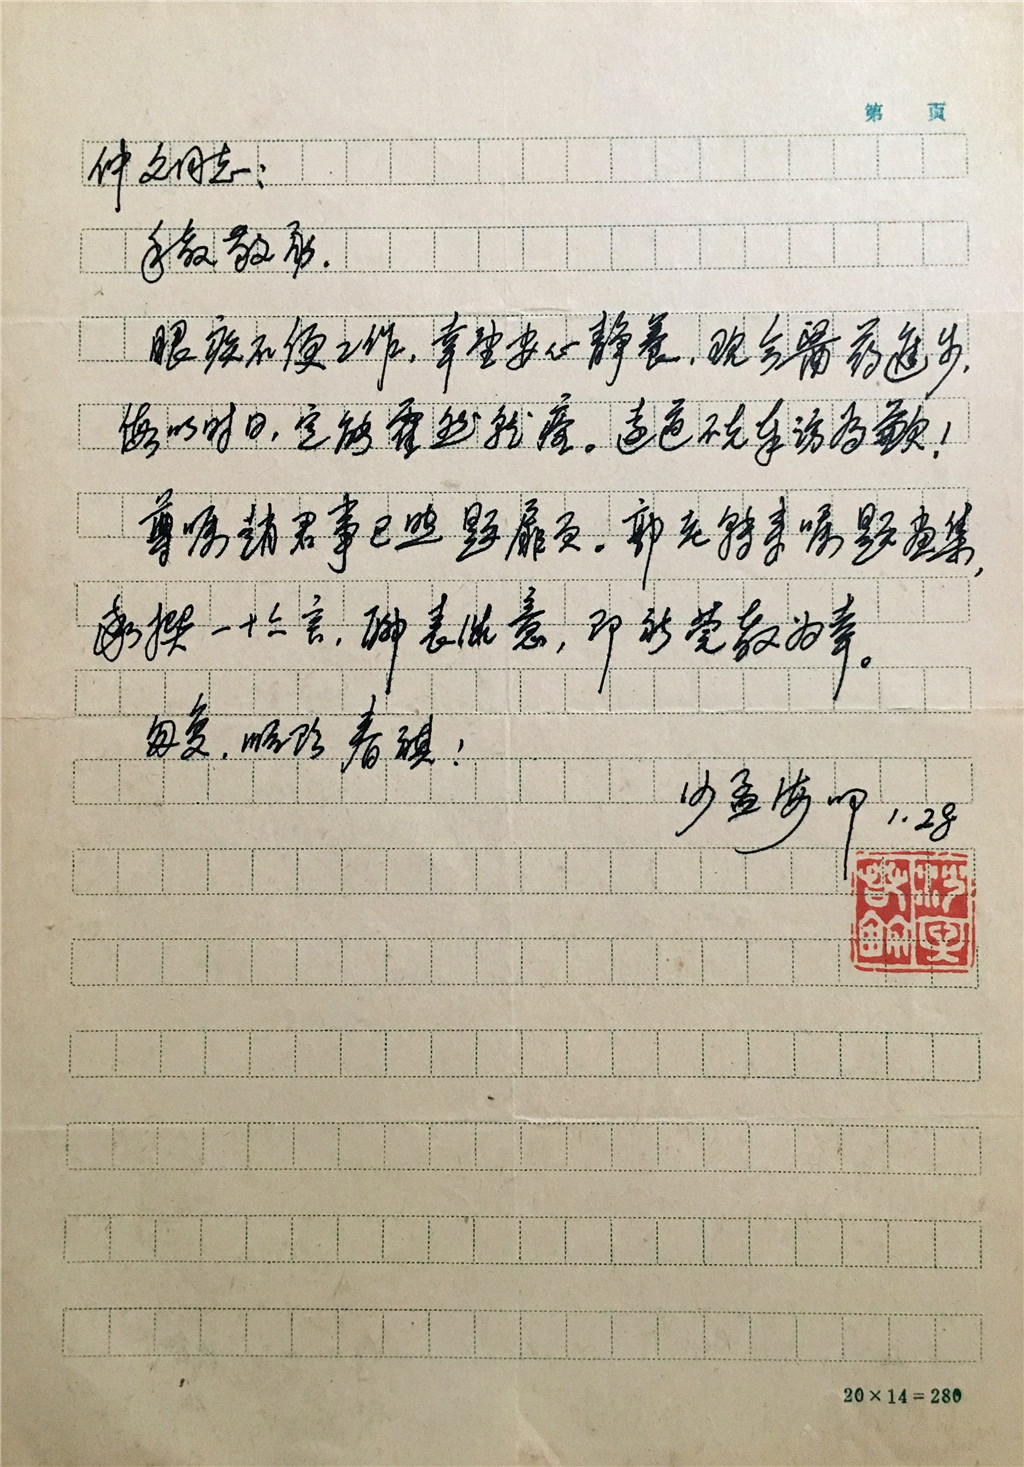 第 页
仲文同志：
手教敬承．
眼疾不便工作，幸望安心静養，现今醫药進步，
假以时日，定能霍然就痊。遠道不克奉访为歉！
尊嘱趙君事已照题扉页。郭老转来嘱题画集，
撰一十六言，聊表微意，即祈莞教为幸。
匆复，顺颂春祺！
沙孟海叩 1.28
20×14=280